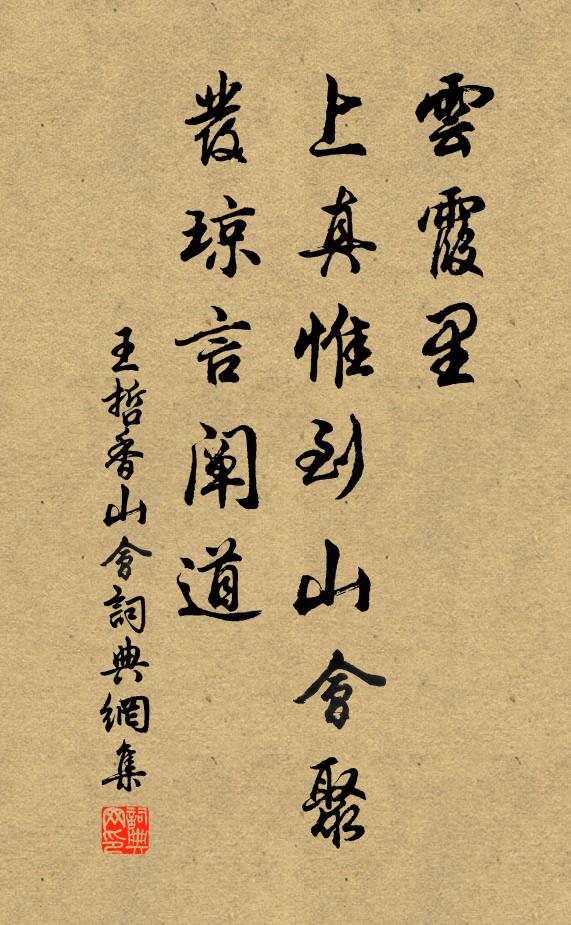 雲霞里
上真惟到山會聚
發琼言阐道
王哲香山會詞典網集
詞典网印